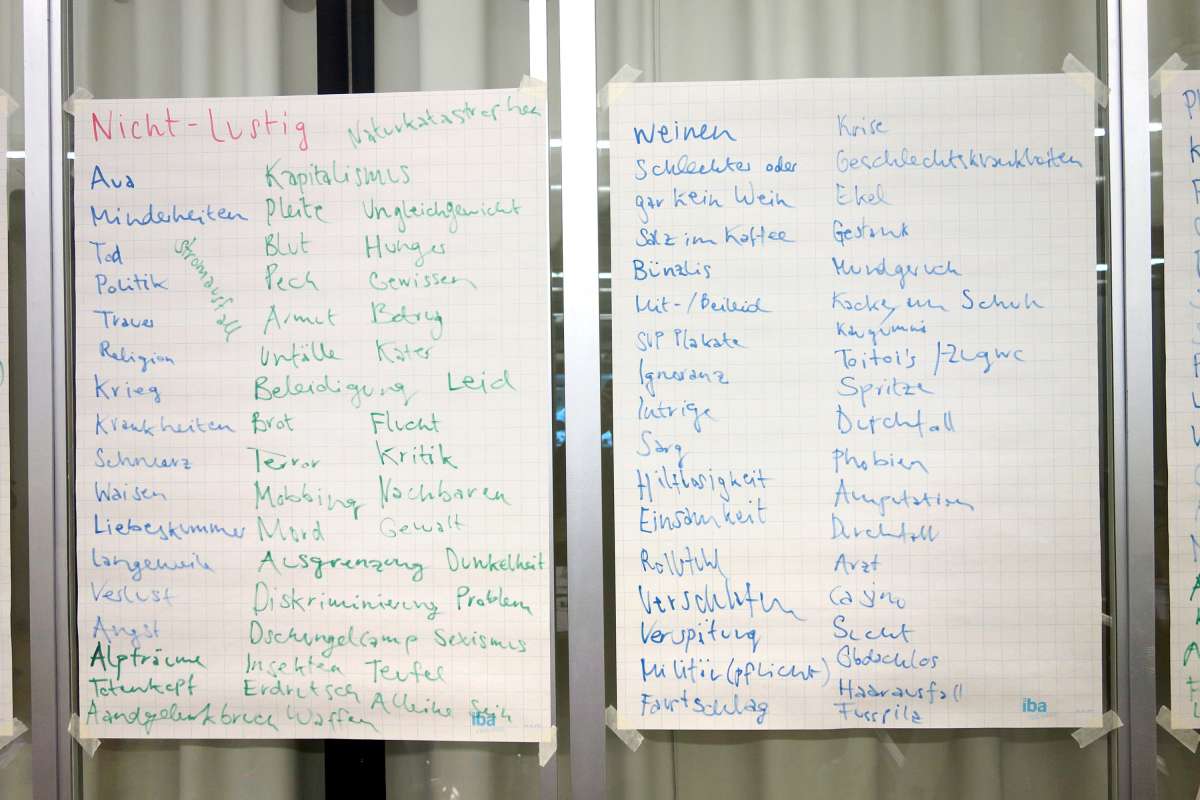 Nicht-Lustig
Naturkatastrophen
Aua
Minderheiten
Tod
Politik
Trauer
Religion
Krieg
Krankheiten
Schmerz
Waisen
Liebeskummer
Langeweile
Verlust
Angst
Alpträume
Totenkopf
Stromausfall
Kapitalismus
Pleite Ungleichgewicht
Blut Hunger
Pech Gewissen
Armut Betrug
Unfälle Kater
Beleidigung Leid
Brot Flucht
Terror Kritik
Mobbing Nachbaren
Mord Gewalt
Ausgrenzung Dunkelheit
Diskriminierung Problem
Dschungelcamp Sexismus
Insekten Teufel
Erdrutsch Alleine Sein
Waffen
iba
weinen
Schlechter oder
gar kein Wein
Salz im Kaffee
Bünzlis
Mit-/Beileid
SVP Plakate
Ignoranz
Intrige
Sarg
Hilflosigkeit
Einsamkeit
Rollstuhl
Verschlafen
Verspätung
Militär(pflicht)
Faustschlag
Krise
Geschlechtskrankheiten
Ekel
Gestank
Mundgeruch
Kacke am Schuh
Kaugummi
Toitoi's /-Zugwc
Spritze
Durchfall
Phobien
Amputation
Durchfall
Arzt
Casino
Sucht
Obdachlos
Haarausfall
Fusspilz
iba